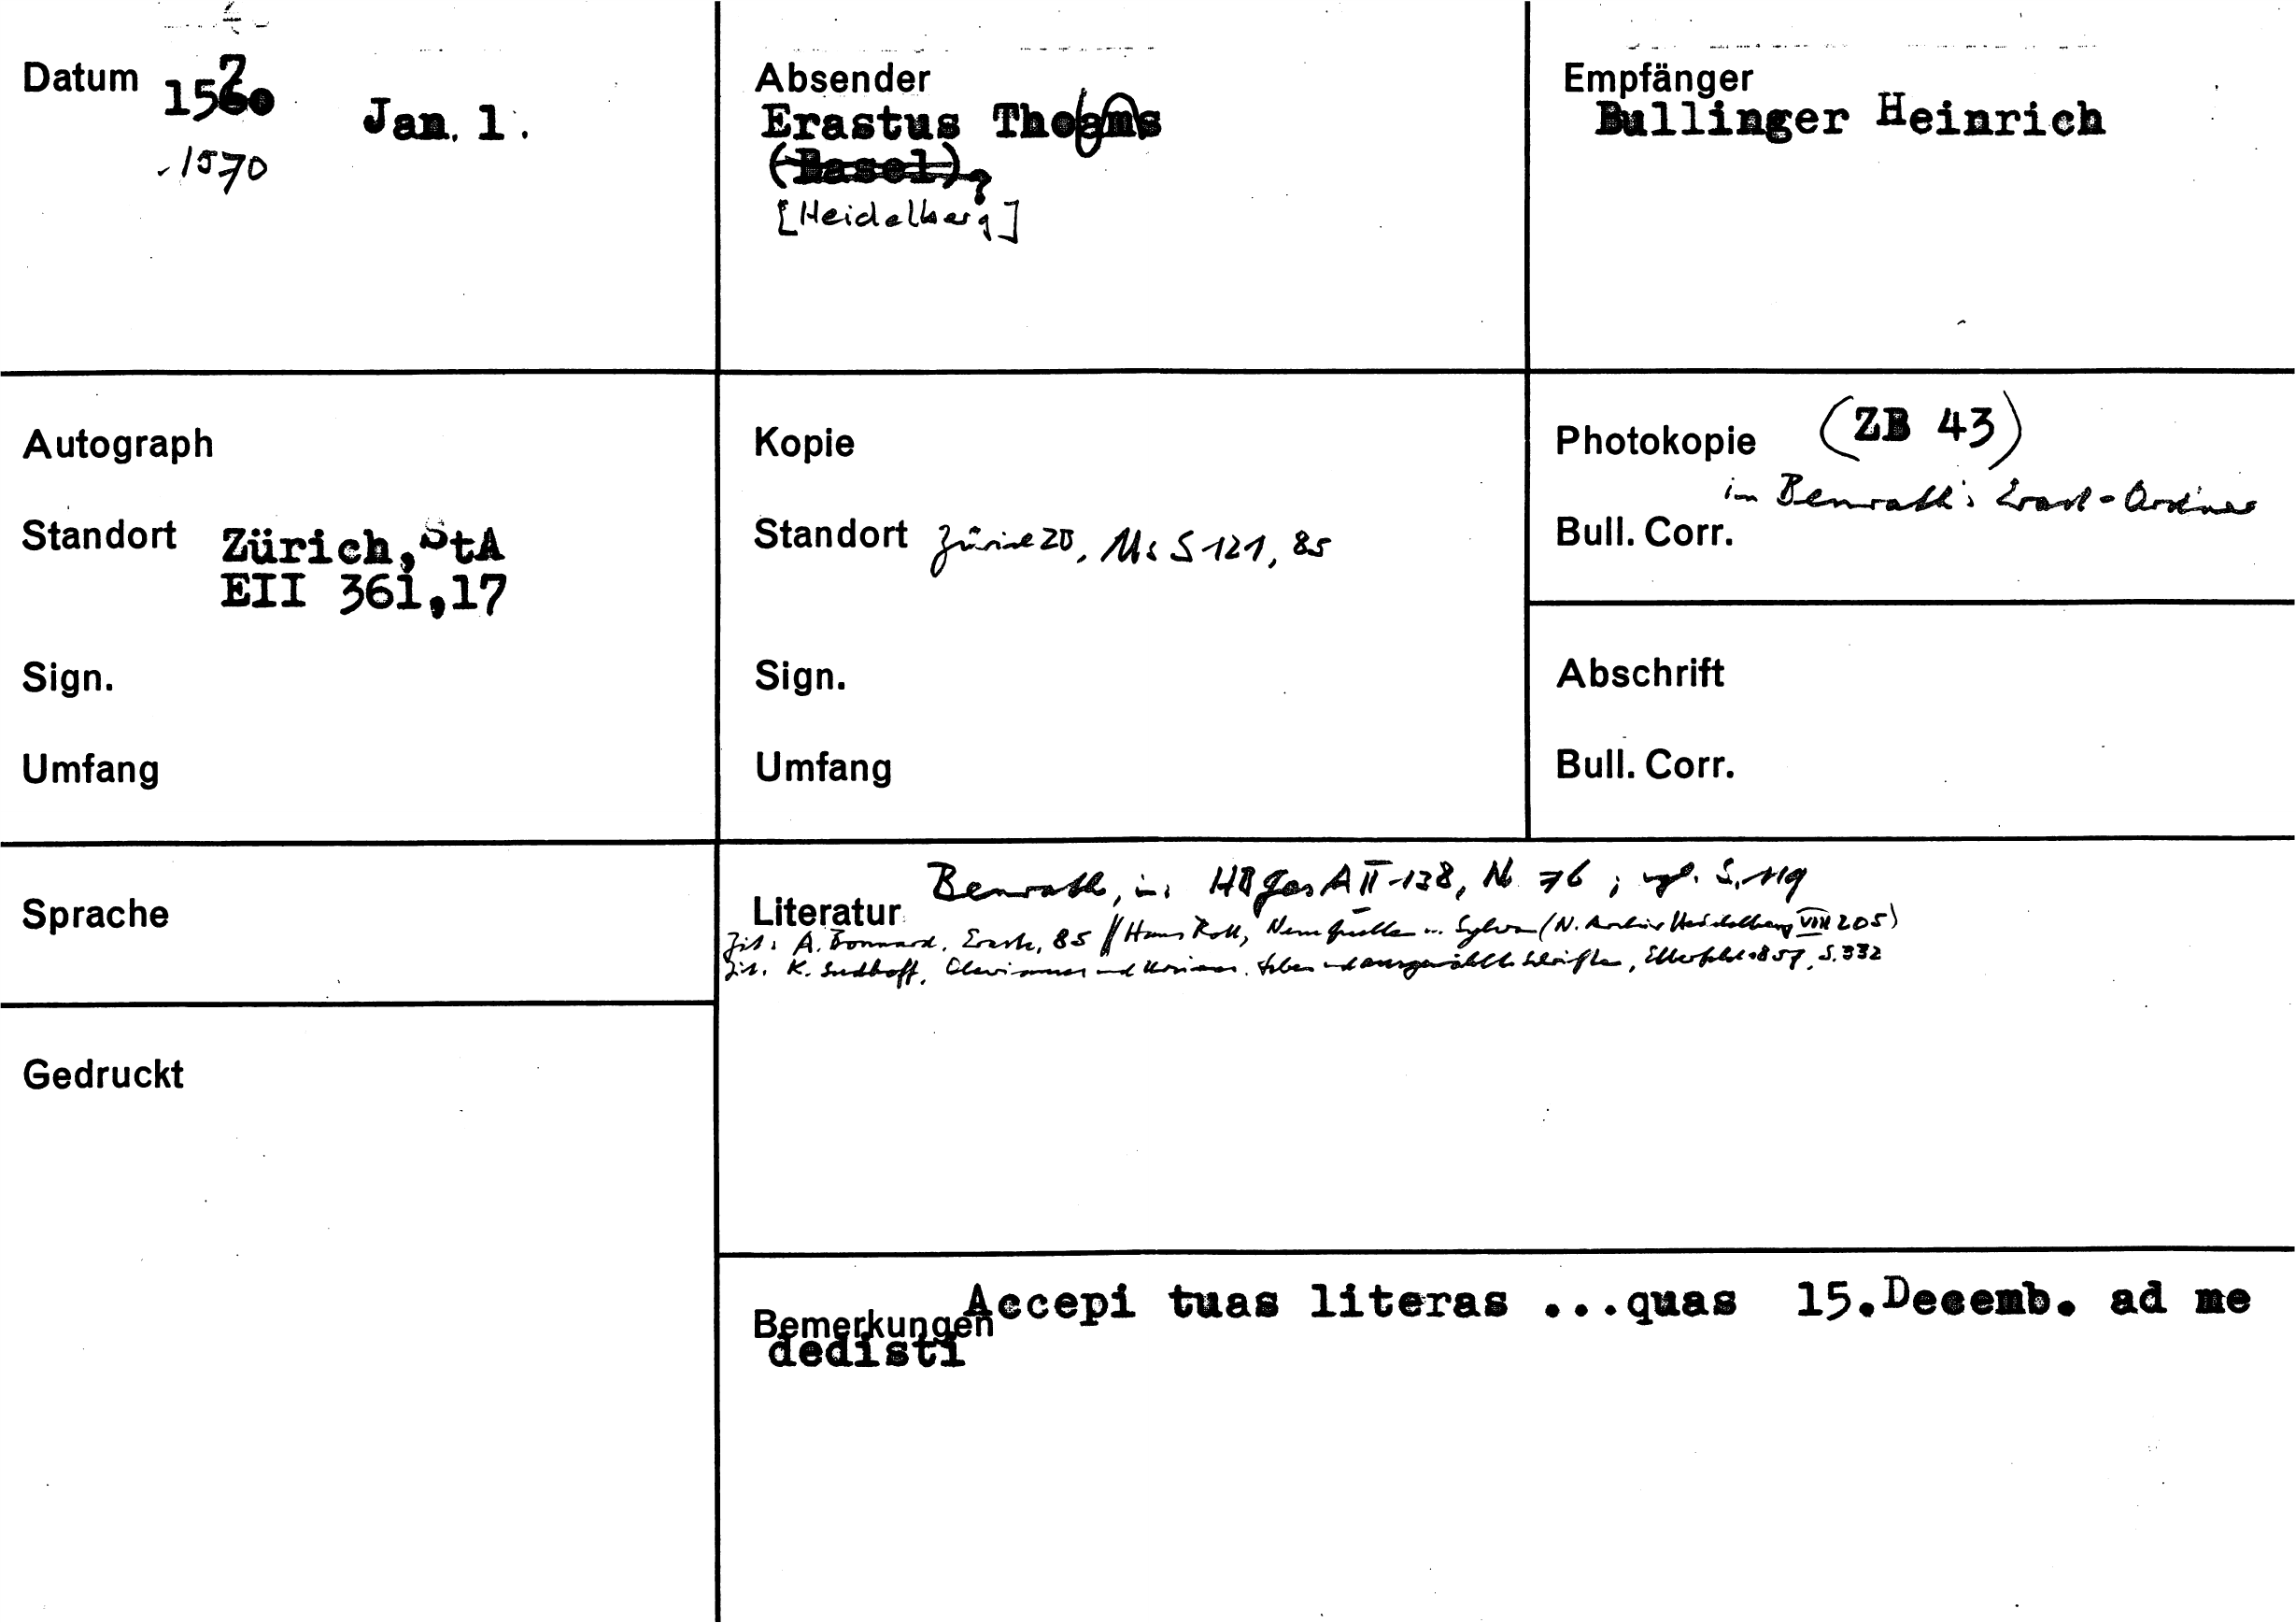 Datum 1570 Jan. 1.
1570
Absender
Erastus Thoams
(Basel)?
[Heidelberg]
Empfänger
Bullinger Heinrich
Autograph
Standort Zürich, StA
EII 361,17
Sign.
Umfang
Kopie
Standort Zürich ZB, Ms S 121, 85
Sign.
Umfang
Photokopie (ZB 43)
im Benrath's Erast-Ordner
Bull. Corr.
Abschrift
Bull. Corr.
Sprache
Gedruckt
Benrath, in: HBGesA II 138, Nr 76 ; vgl. S. 119
Literatur
Zit: A. Bonnard, Eraste, 85 // Hans Rott, Neue Quellen Sylvan (N. Archiv Heidelberg VIII 205)
Zit. K. Sudhoff, Olevianus und Ursinus. Leben und ausgewählte Schriften, Elberfeld 1857, S. 332
Bemerkungen Accepi tuas literas ...quas 15.Decemb. ad me
dedisti